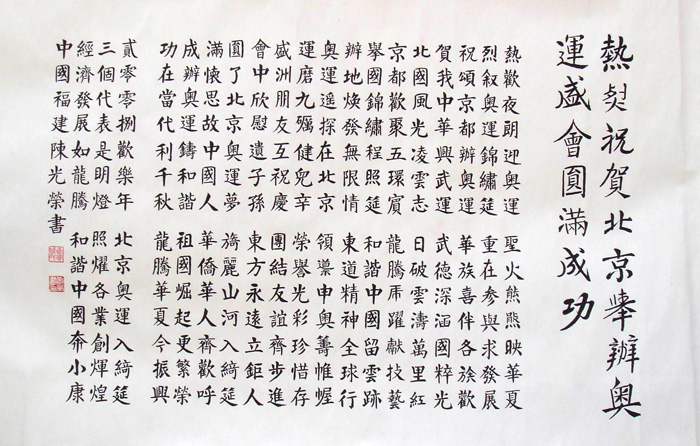 熱烈祝賀北京舉辦奧
運盛會圓滿成功
熱歡夜朗迎奧運 聖火熊熊映華夏
烈叙奧運錦繡筵 重在参與求發展
祝頌京都辦奧運 華族喜伴各族歡
賀我中華興武運 武德深涵國粹光
北國風光凌雲志 日破雲濤萬里紅
京都歡聚五環賓 龍騰虎躍獻技藝
舉國錦繡程照筵 和諧中國留雲跡
辦地煥發無限情 東道精神全球行
奧運遥探在北京 領禀申奧籌惟幄
運磨九礪健兒辛 榮譽光彩珍惜存
盛洲朋友互祝慶 團結友誼齊步進
會中欣慰遺子孫 東方永遠立鉅人
圓了北京奧運夢 旖麗山河入綺筵
滿懷思故中國人 華僑華人齊歡呼
成辦奧運鑄和諧 祖國崛起更繁榮
功在當代利千秋 龍騰華夏今振興
貳零零捌歡樂年 北京奧運入綺筵
三個代表是明燈 照耀各業創輝煌
經濟發展如龍騰 和諧中國奔小康
中國福建陳光榮書